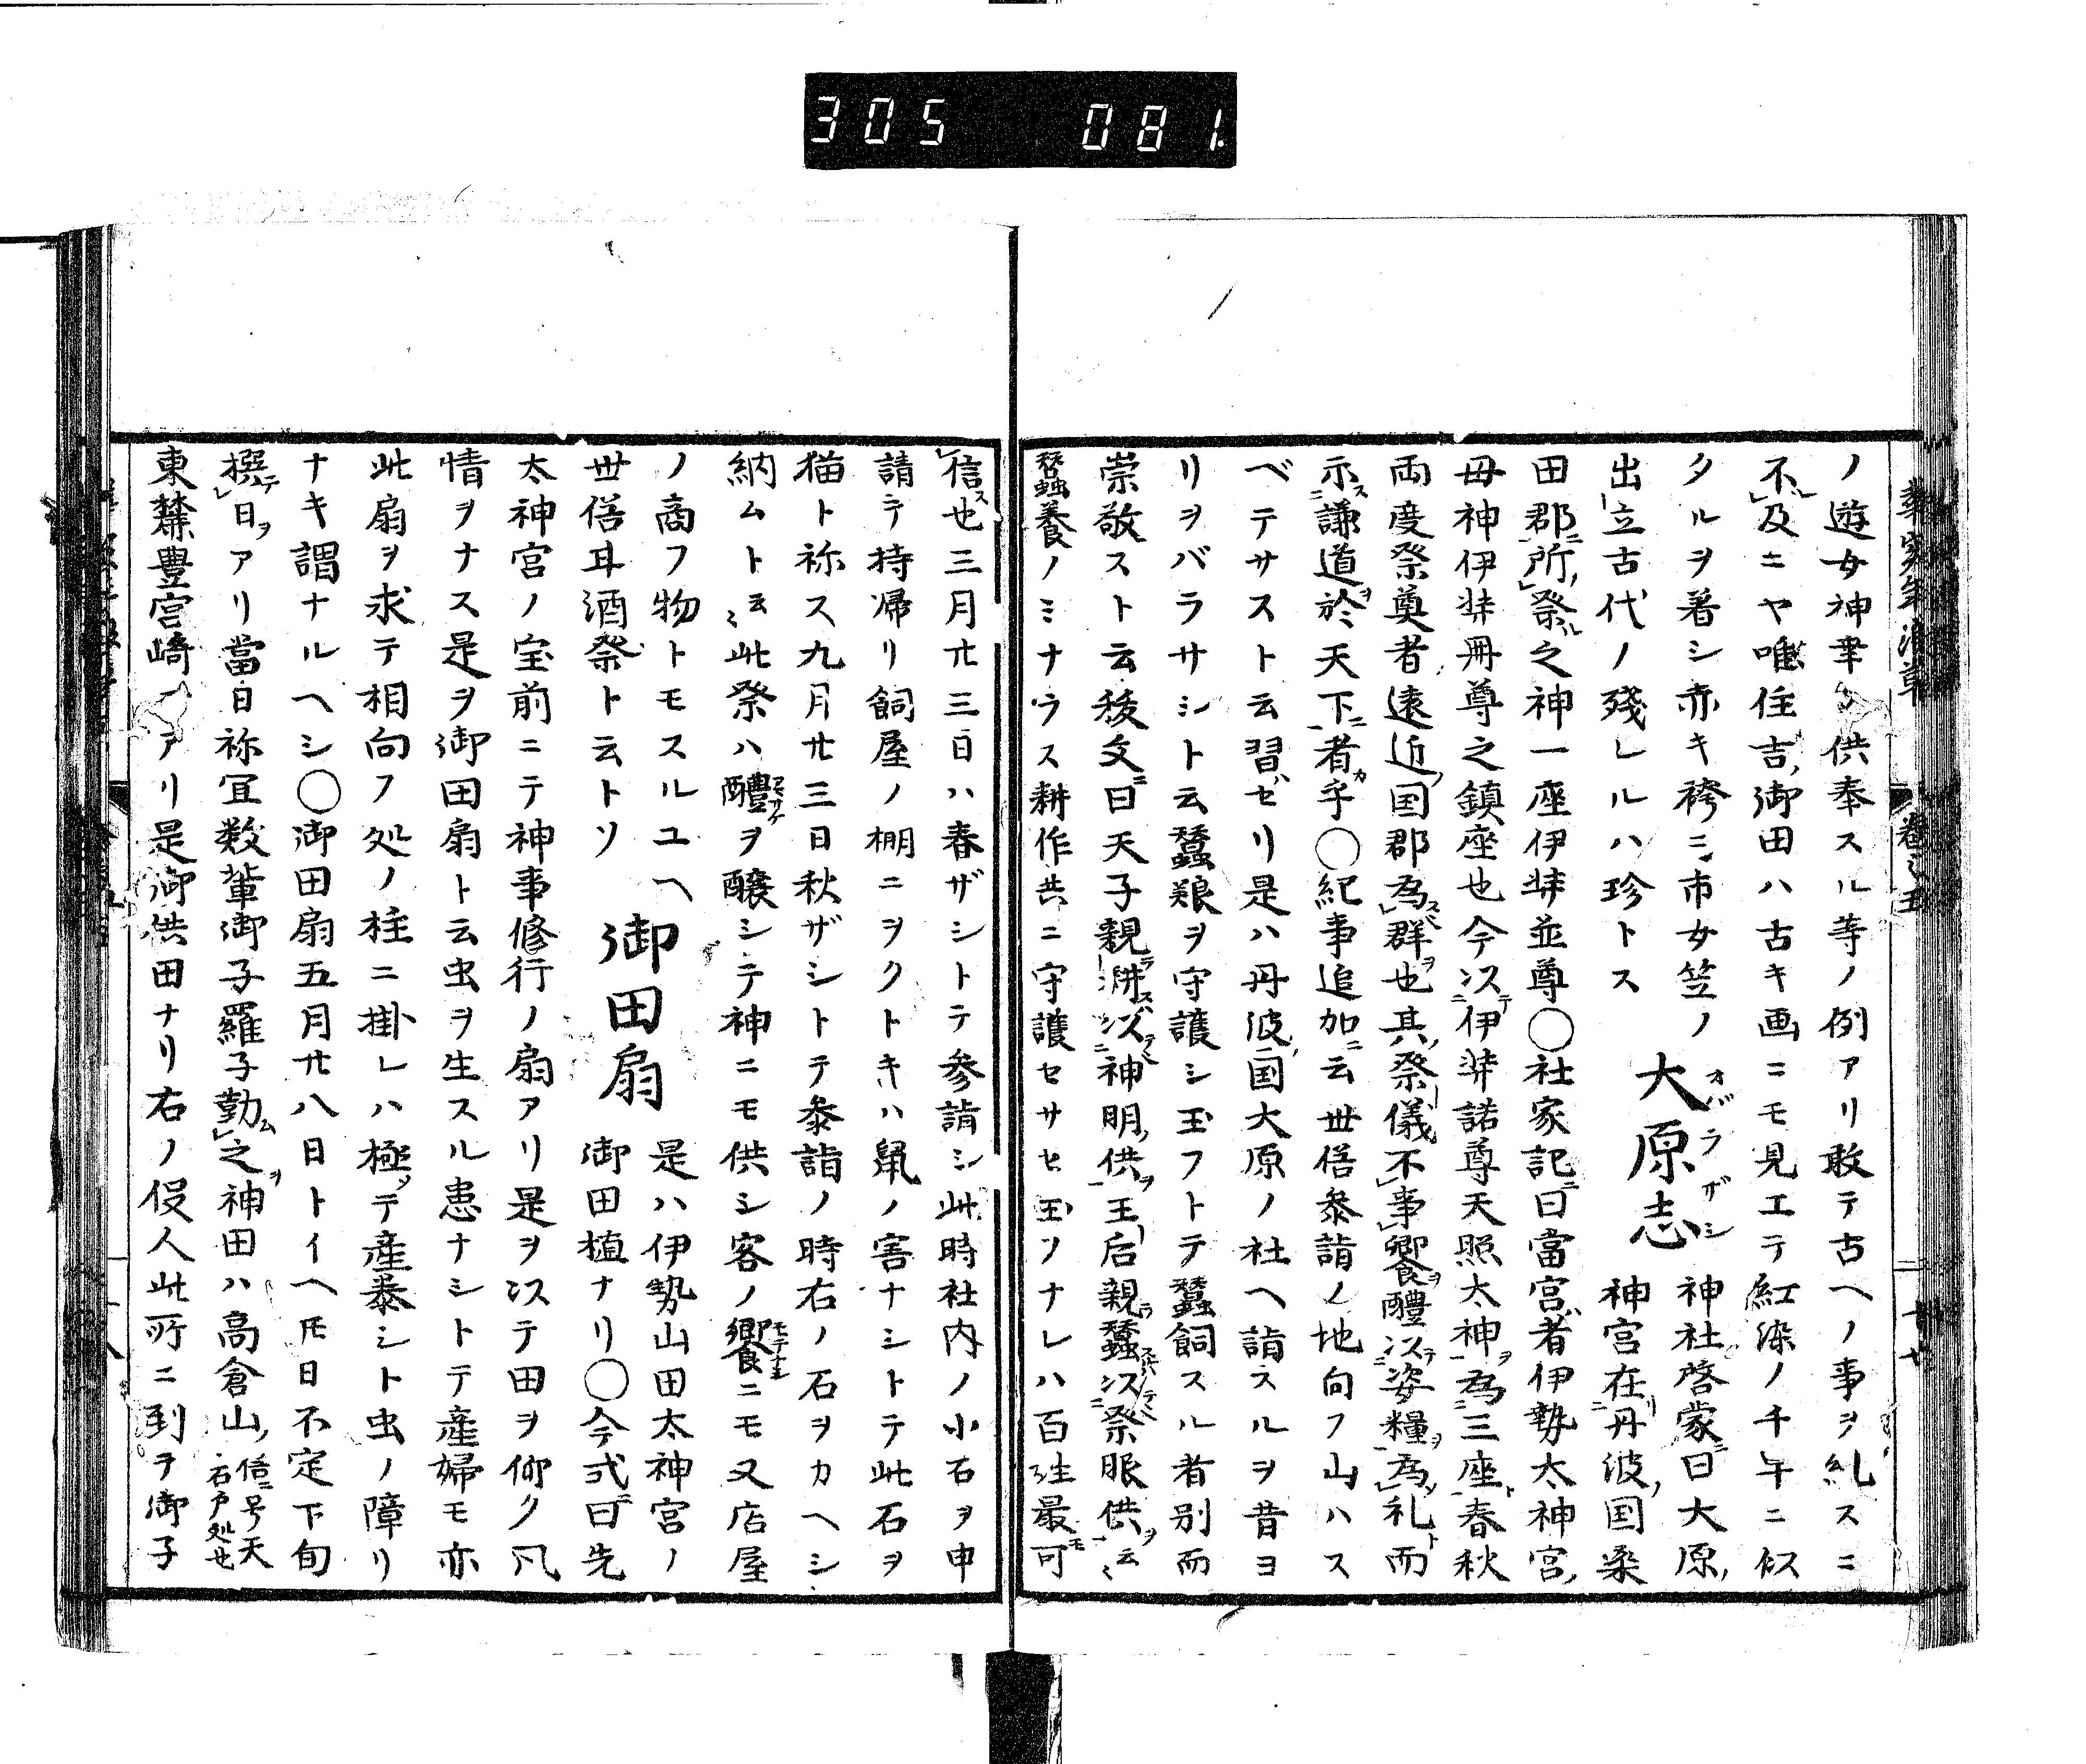 305 081.
ノ遊女神事ノ供奉スル等ノ例アリ敢テ古ヘノ事ヲ糺スニ
不及ニヤ唯住吉ノ御田ハ古キ画ニモ見エテ紅染ノ千午ニ似
タルヲ着シ赤キ袴ニ市女笠ノ
出立古代ノ残レルハ珍トス
大原志
オバラザシ
神社啓蒙ニ曰大原ノ
神宮在丹波ノ国桑
田郡ニ所祭ル之神一座伊弉並尊〇社家記ニ曰當宮者伊勢太神宮ノ
母神伊弉冊尊之鎮座也今以テ伊弉諾尊天照太神ヲ為三座ト春秋
両度祭奠者遠近ノ国郡為群ヲ也其ノ祭儀不事饗ヲ醴以テ姿糧ヲ為礼ト而
示ス謙道ヲ於天下ニ者カ乎〇紀事追加ニ云世俗参詣ノ地向フ山ハス
ベテサスト云習ゼリ是ハ丹波ノ国大原ノ社ヘ詣スルヲ昔ヨ
リヲバラサシト云蚕娘ヲ守護シ玉フトテ蚕飼スル者別而
崇敬スト云後文ニ曰天子親耕ス以神明ノ供ヲ王后親ラ蚕以祭服ノ供ヲ云々
蚕養ノミナラス耕作共ニ守護セサセ玉ソナレハ百姓最可モ
信ス也三月廿三日ハ春ザシトテ参詣シ此時社内ノ小石ヲ申
請テ持帰リ飼屋ノ棚ニヲクトキハ鼠ノ害ナシトテ此石ヲ
猫ト祢ス九月廿三日秋ザシトテ参詣ノ時右ノ石ヲカヘシ
納ムト云々此祭ハ醴ヲ醸シテ神ニモ供シ客ノ饗ニモ又店屋
ノ商フ物トモスルユヘ
世俗耳酒祭ト云トソ
御田扇
是ハ伊勢山田太神宮ノ
御田植ナリ〇今式ニ曰先
太神宮ノ宝前ニテ神事修行ノ扇アリ是ヲ以テ田ヲ仰ク凡
情ヲナス是ヲ御田扇ト云虫ヲ生スル患ナシトテ産婦モ亦
此扇ヲ求テ相向フ処ノ柱ニ掛レハ極テ産泰シト虫ノ障リ
ナキ謂ナルヘシ〇御田扇五月廿八日トイヘ𪜈日不定下旬
撰テ日ヲアリ當日祢冝数輩御子羅子勤ム之ヲ神田ハ高倉山ノ俗ニ号天ノ石戸処也
東麓豊宮崎ノアリ是御供田ナリ右ノ役人此所ニ到ヲ御子